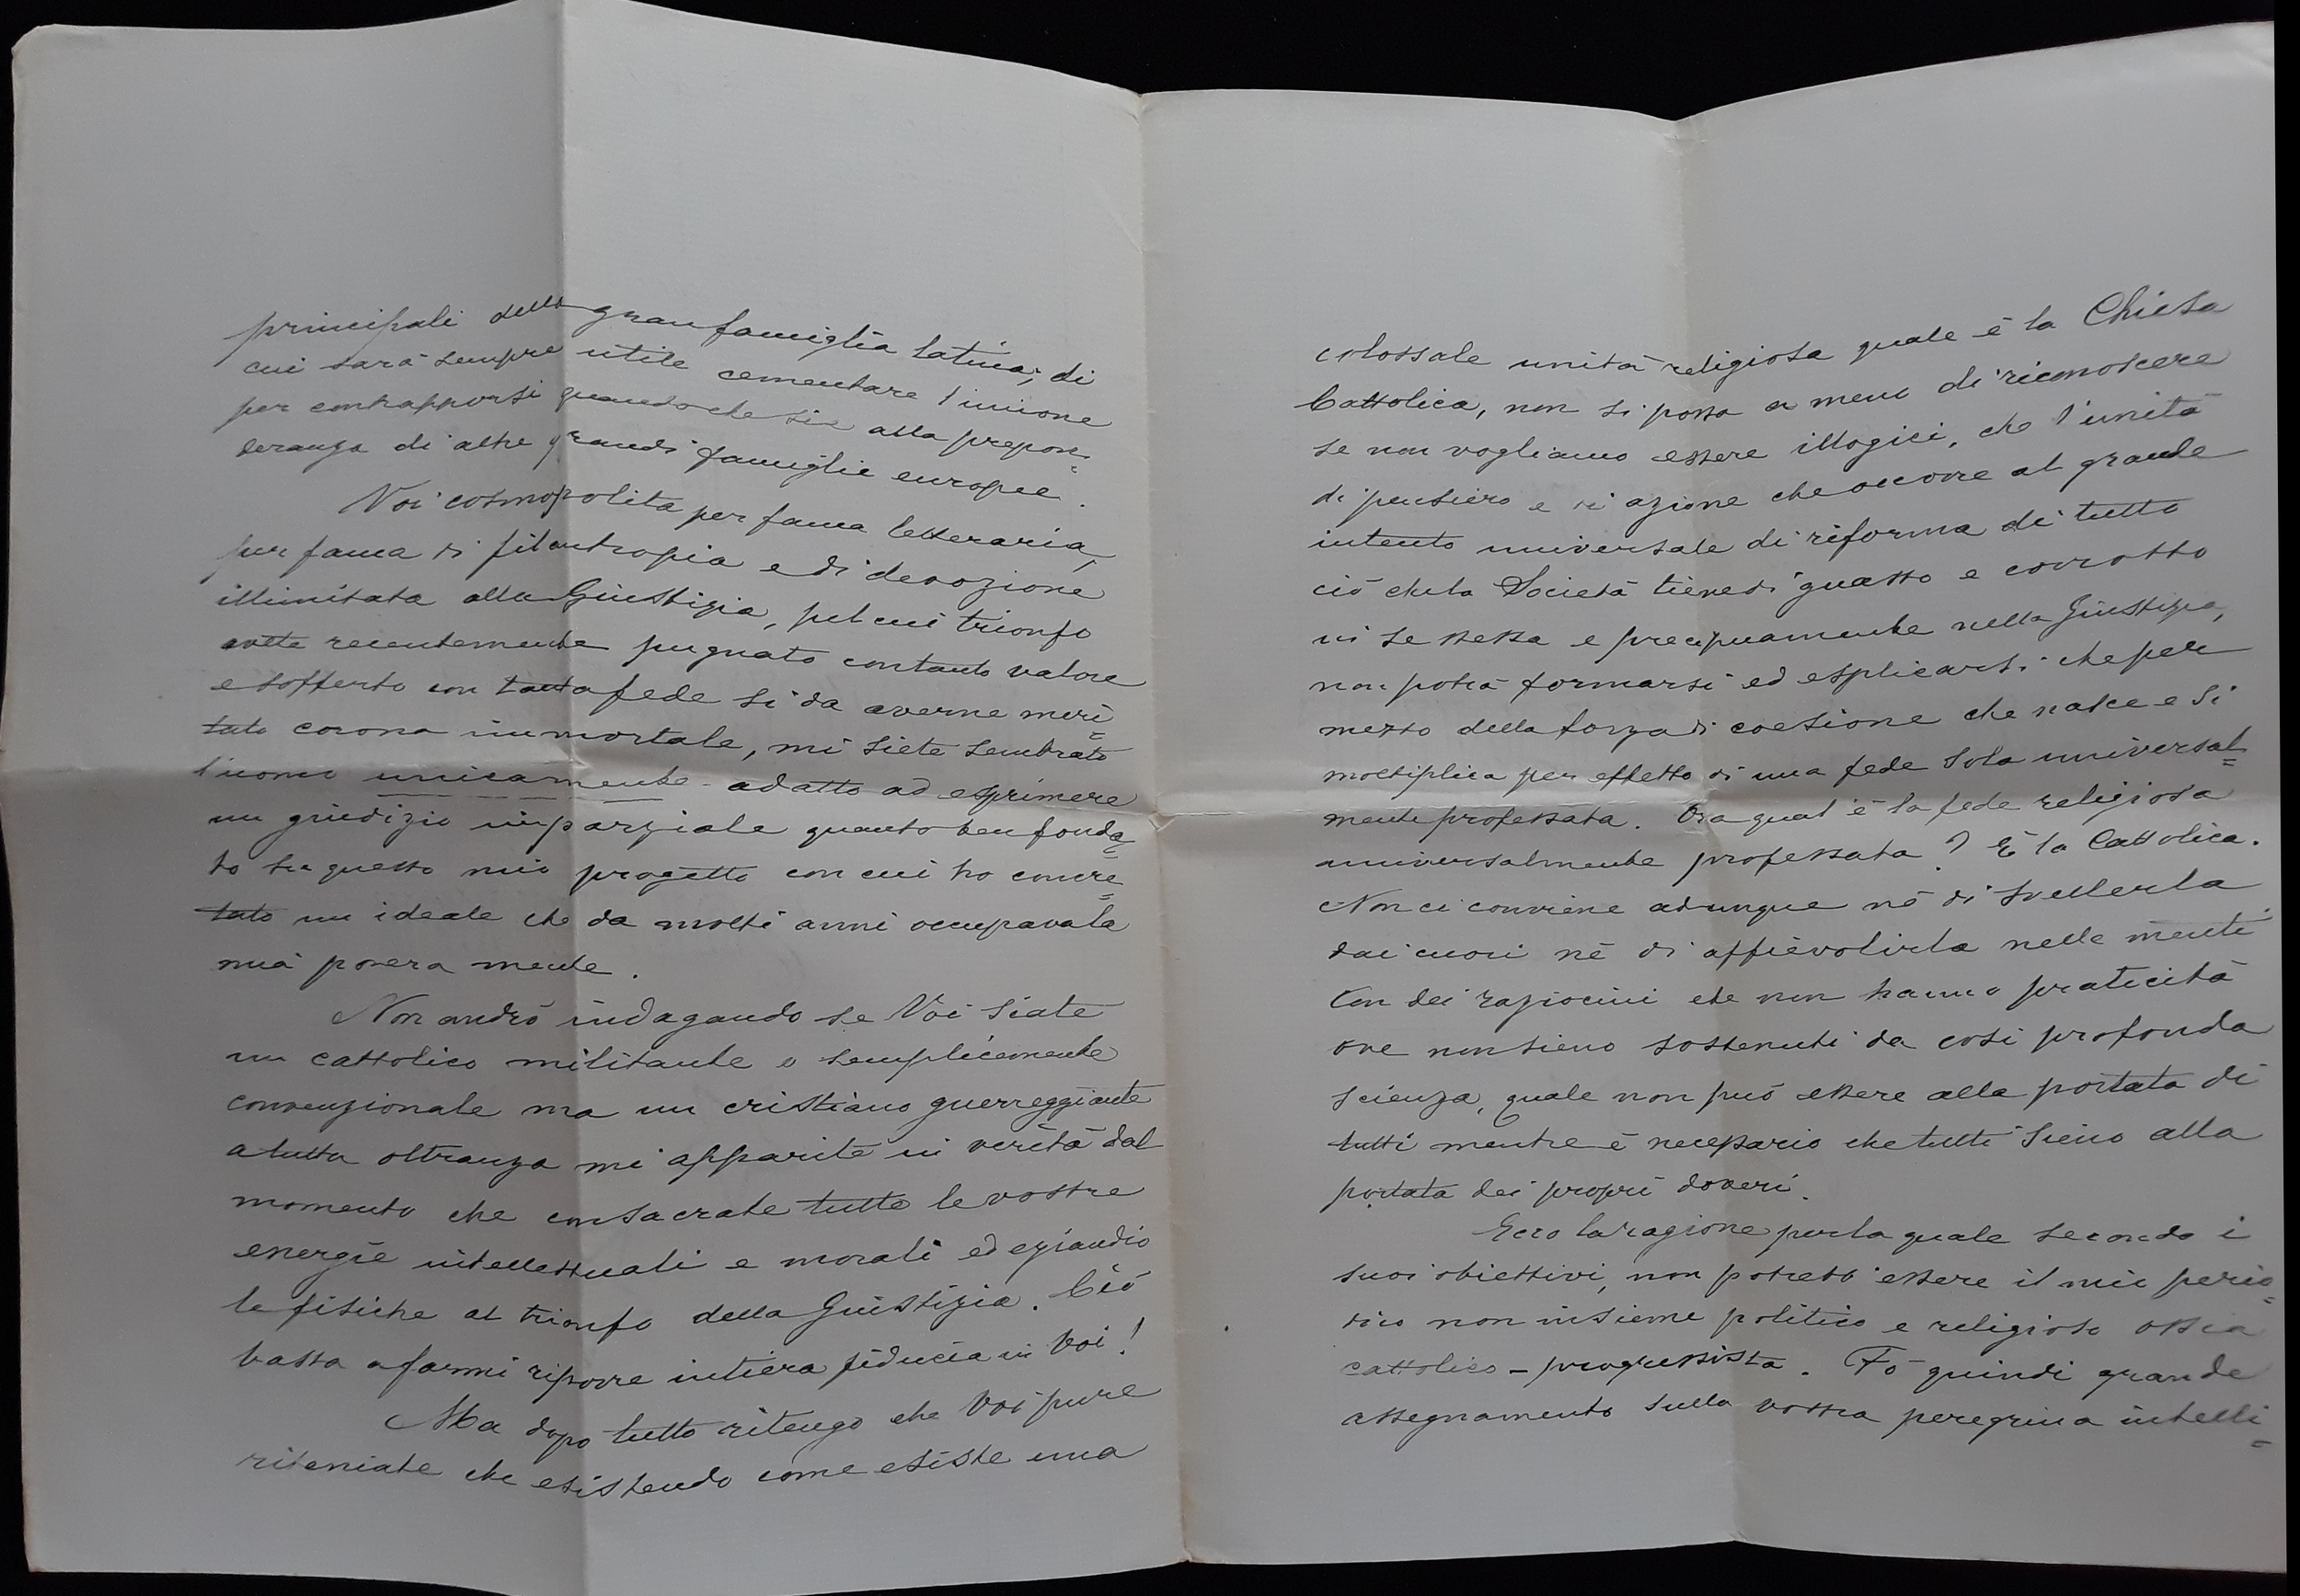 principali della gran famiglia latina, di
cui sarà sempre utile cementare l'unione
per contrapporsi quandochesia alla prepon=
deranza di altre grandi famiglie europee.
Voi cosmopolita per fama letteraria,
per fama di filantropia e di devozione
illimitata alla Giustizia, pel cui trionfo
avete recentemente pugnato con tanto valore
e sofferto con tanta fede sì da averne meri=
tato corona immortale, mi siete sembrato
l'uomo unicamente adatto ad esprimere
un giudizio imparziale quanto ben fonda=
to su questo mio progetto con cui ho concre=
tato un ideale che da molti anni occupava la
mia povera mente.
Non andrò indagando se Voi siate
un cattolico militante o semplicemente
convenzionale ma un cristiano guerreggiante
a tutta oltranza mi apparite in verità dal
momento che consacrate tutte le vostre
energie intellettuali e morali ed eziandio
le fisiche al trionfo della Giustizia. Ciò
basta a farmi riporre intiera fiducia in Voi!
Ma dopo tutto ritengo che Voi pure
riteniate che esistendo come esiste una
colossale unità religiosa quale è la Chiesa
Cattolica, non si possa a meno di riconoscere
se non vogliamo essere illogici, che l'unità
di pensiero e di azione che occorre al grande
intento universale di riforma di tutto
ciò che la Società tiene di guasto e corrotto
in se stessa e precipuamente nella Giustizia,
non potrà formarsi ed esplicarsi che per
mezzo della forza di coesione che nasce e si
moltiplica per effetto di una fede sola universal=
mente professata. Ora qual'è la fede religiosa
universalmente professata? È la Cattolica.
Non ci conviene adunque nè di svellerla
dai cuori nè di affievolirla nelle menti
con dei raziocini che non hanno praticità
ove non sieno sostenuti da così profonda
scienza, quale non può essere alla portata di
tutti mentre è necessario che tutti sieno alla
portata dei proprî doveri.
Ecco la ragione per la quale secondo i
suoi obiettivi, non potrebb'essere il mio perio=
dico non insieme politico e religioso ossia
cattolico-progressista. Fò quindi grande
assegnamento sulla vostra peregrina intelli=